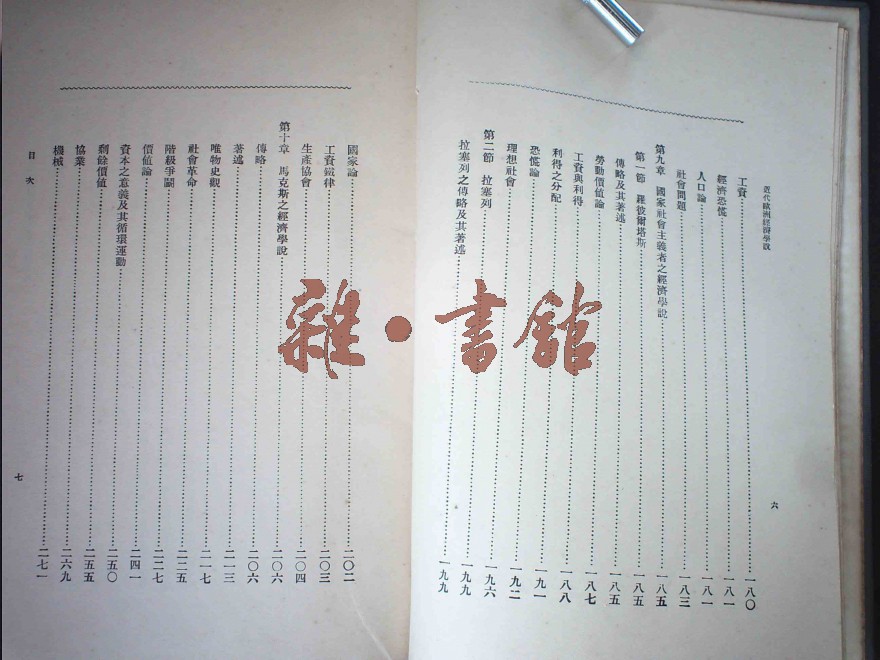 近代歐洲經濟學說
工資……一八〇
經濟恐慌……一八一
人口論……一八一
社會問題……一八三
第九章 國家社會主義者之經濟學說……一八五
第一節 羅彼爾塔斯……一八五
傳略及其著述……一八五
勞動價值論……一八七
工資與利得……一八八
利得之分配……一九一
恐慌論……一九二
理想社會……一九六
第二節 拉塞列……一九九
拉塞列之傳略及其著述……一九九
六
國家論……二〇二
工資鐵律……二〇三
生產協會……二〇四
第十章 馬克斯之經濟學說……二〇六
傳略……二〇六
著述……二一三
唯物史觀……二一七
社會革命……二二五
階級爭鬭……二二七
價值論……二四一
資本之意義及其循環運動……二五〇
剩餘價值……二五五
協業……二六九
機械……二七一
目次
七
雜·書館